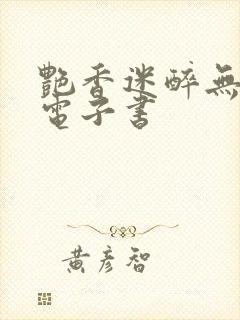 艷香迷醉無
電子書
黃彥智